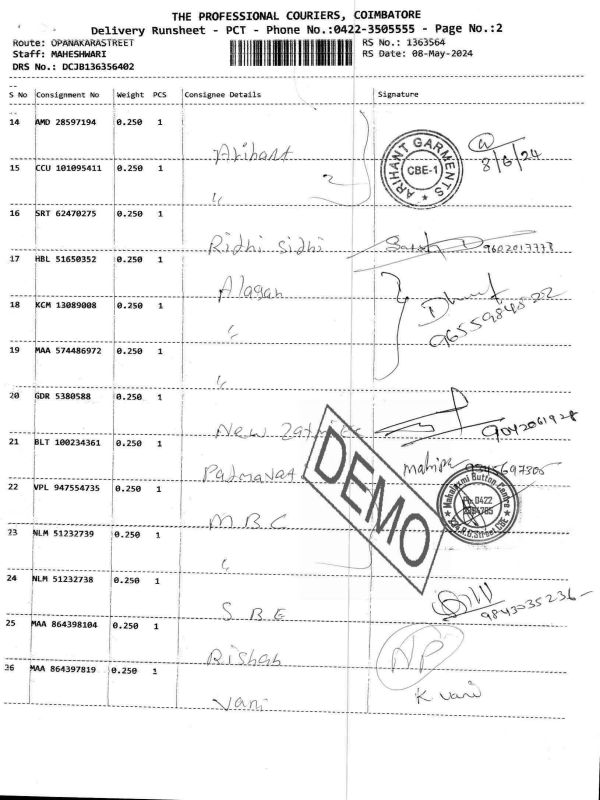 THE PROFESSIONAL COURIERS, COIMBATORE
Delivery Runsheet - PCT - Phone No.:0422-3505555 - Page No.:2
Route: OPANAKARASTREET RS No.: 1363564
Staff: MAHESHWARI RS Date: 08-May-2024
DRS No.: DCJB136356402
S No Consignment No Weight PCS Consignee Details Signature
14 AMD 28597194 0.250 1 Arihant
ARIHANT GARMENTS CBE-1
8/6/24
15 CCU 101095411 0.250 1 "
16 SRT 62470275 0.250 1 Ridhi Sidhi
17 HBL 51650352 0.250 1 Alagan
18 KCM 13089008 0.250 1 "
9655984822
19 MAA 574486972 0.250 1 "
20 GDR 5380588 0.250 1 New
9042061928
21 BLT 100234361 0.250 1
DEMO
22 VPL 947554735 0.250 1 M.B.C
Mahalaxmi Button Centre
Ph: 0422
23 NLM 51232739 0.250 1 "
24 NLM 51232738 0.250 1 S.B.E
9843035236
25 MAA 864398104 0.250 1 Rishab AP
26 MAA 864397819 0.250 1 Vani K Vani